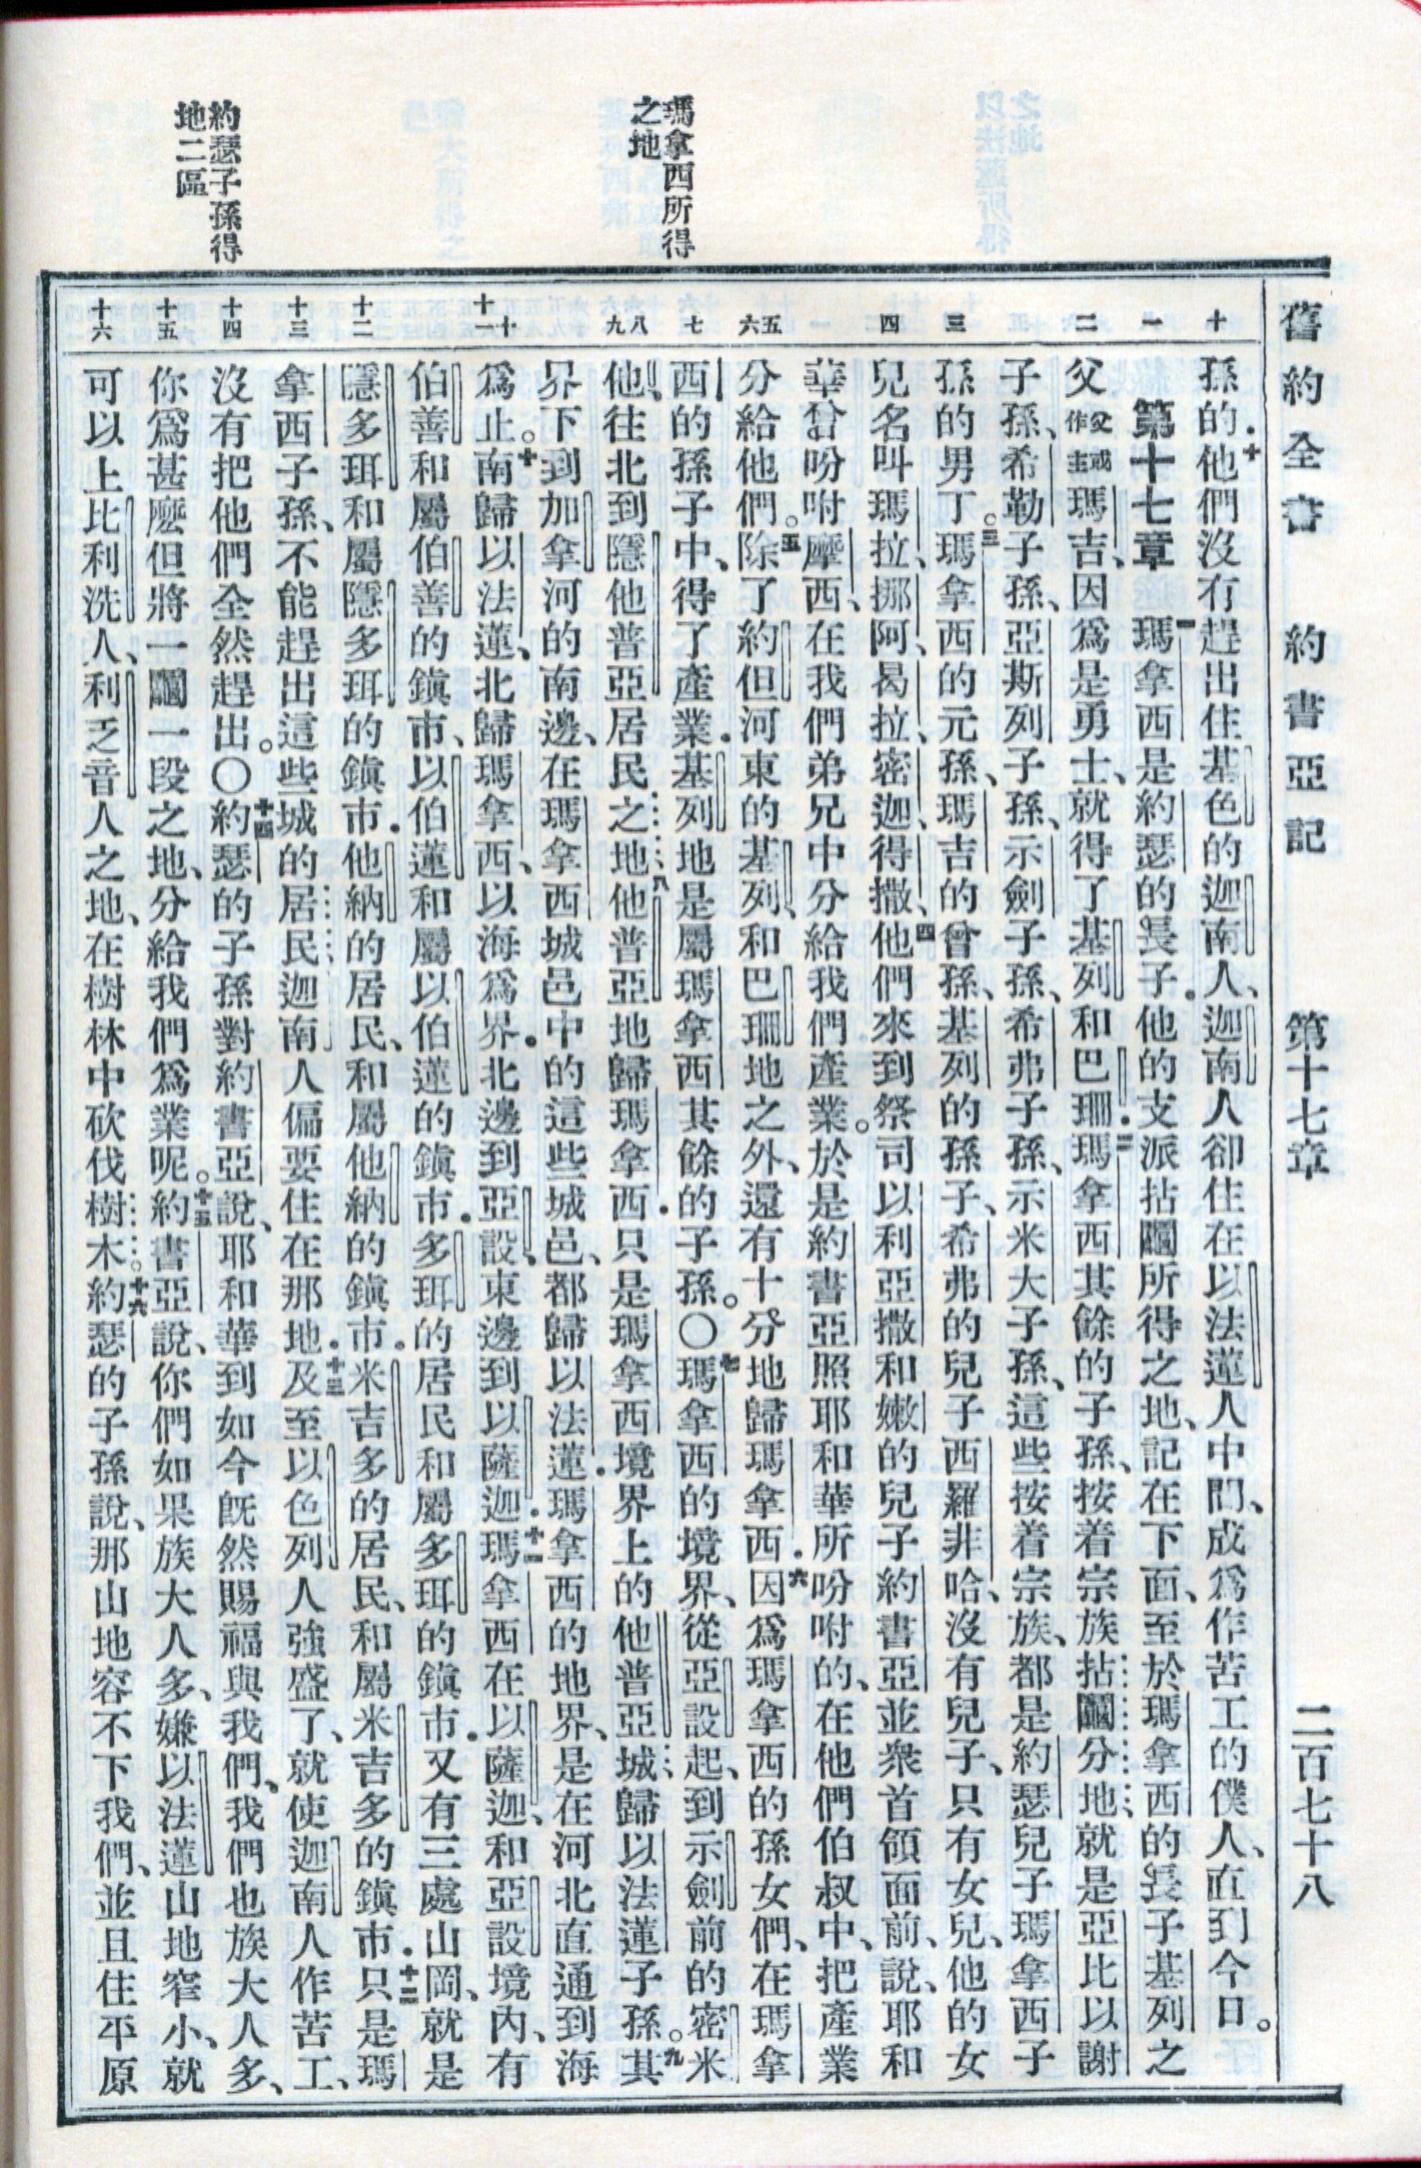 舊約全書 約書亞記 第十七章 二百七十八
瑪拿西所得
之地
約瑟子孫得
地二區
十
一
二
三
四
五
六
七
八
九
十
十一
十二
十三
十四
十五
十六
孫的.十他們沒有趕出住基色的迦南人、迦南人卻住在以法蓮人中間、成爲作苦工的僕人、直到今日。
第十七章 一瑪拿西是約瑟的長子.他的支派拈鬮所得之地、記在下面、至於瑪拿西的長子基列之
父父或作主瑪吉、因爲是勇士、就得了基列和巴珊.二瑪拿西其餘的子孫、按着宗族拈鬮分地、就是亞比以謝
子孫、希勒子孫、亞斯列子孫、示劍子孫、希弗子孫、示米大子孫、這些按着宗族、都是約瑟兒子瑪拿西子
孫的男丁。三瑪拿西的元孫、瑪吉的曾孫、基列的孫子、希弗的兒子西羅非哈、沒有兒子、只有女兒、他的女
兒名叫瑪拉、挪阿、曷拉、密迦、得撒、四他們來到祭司以利亞撒和嫩的兒子約書亞並衆首領面前、說、耶和
華曾吩咐摩西、在我們弟兄中分給我們產業。於是約書亞照耶和華所吩咐的、在他們伯叔中、把產業
分給他們。五除了約但河東的基列、和巴珊地之外、還有十分地歸瑪拿西.六因爲瑪拿西的孫女們、在瑪拿
西的孫子中、得了產業.基列地是屬瑪拿西其餘的子孫。〇七瑪拿西的境界、從亞設起、到示劍前的密米
他、往北到隱他普亞居民之地、八他普亞地歸瑪拿西.只是瑪拿西境界上的他普亞城、歸以法蓮子孫。九其
界下到加拿河的南邊、在瑪拿西城邑中的這些城邑、都歸以法蓮.瑪拿西的地界、是在河北直通到海
爲止。十南歸以法蓮、北歸瑪拿西、以海爲界.北邊到亞設、東邊到以薩迦.十一瑪拿西在以薩迦、和亞設境內、有
伯善和屬伯善的鎮市、以伯蓮和屬以伯蓮的鎮市.多珥的居民和屬多珥的鎮市.又有三處山岡、就是
隱多珥和屬隱多珥的鎮市.他納的居民、和屬他納的鎮市.米吉多的居民、和屬米吉多的鎮市.十二只是瑪
拿西子孫、不能趕出這些城的居民迦南人偏要住在那地.十三及至以色列人強盛了、就使迦南人作苦工、
沒有把他們全然趕出。〇十四約瑟的子孫對約書亞說、耶和華到如今旣然賜福與我們、我們也族大人多、
你爲甚麼但將一鬮一段之地、分給我們爲業呢。十五約書亞說、你們如果族大人多、嫌以法蓮山地窄小、就
可以上比利洗人、利乏音人之地、在樹林中砍伐樹木。十六約瑟的子孫說、那山地容不下我們、並且住平原